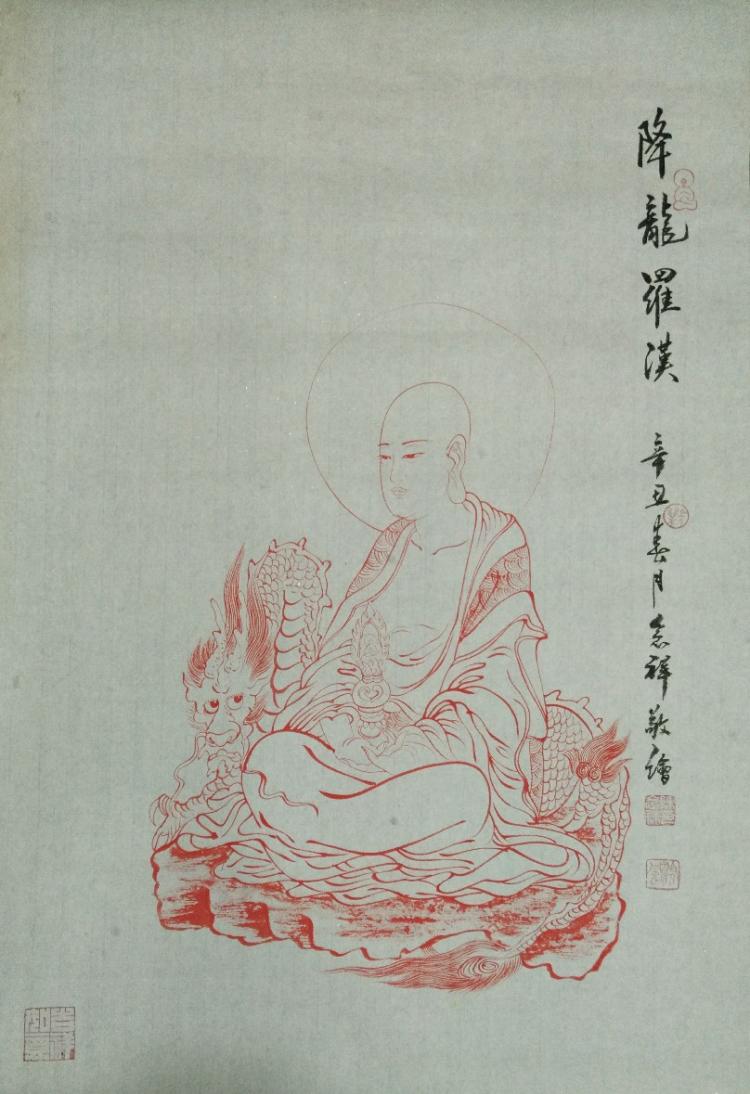 降龍羅漢
辛丑春月念祥敬繪